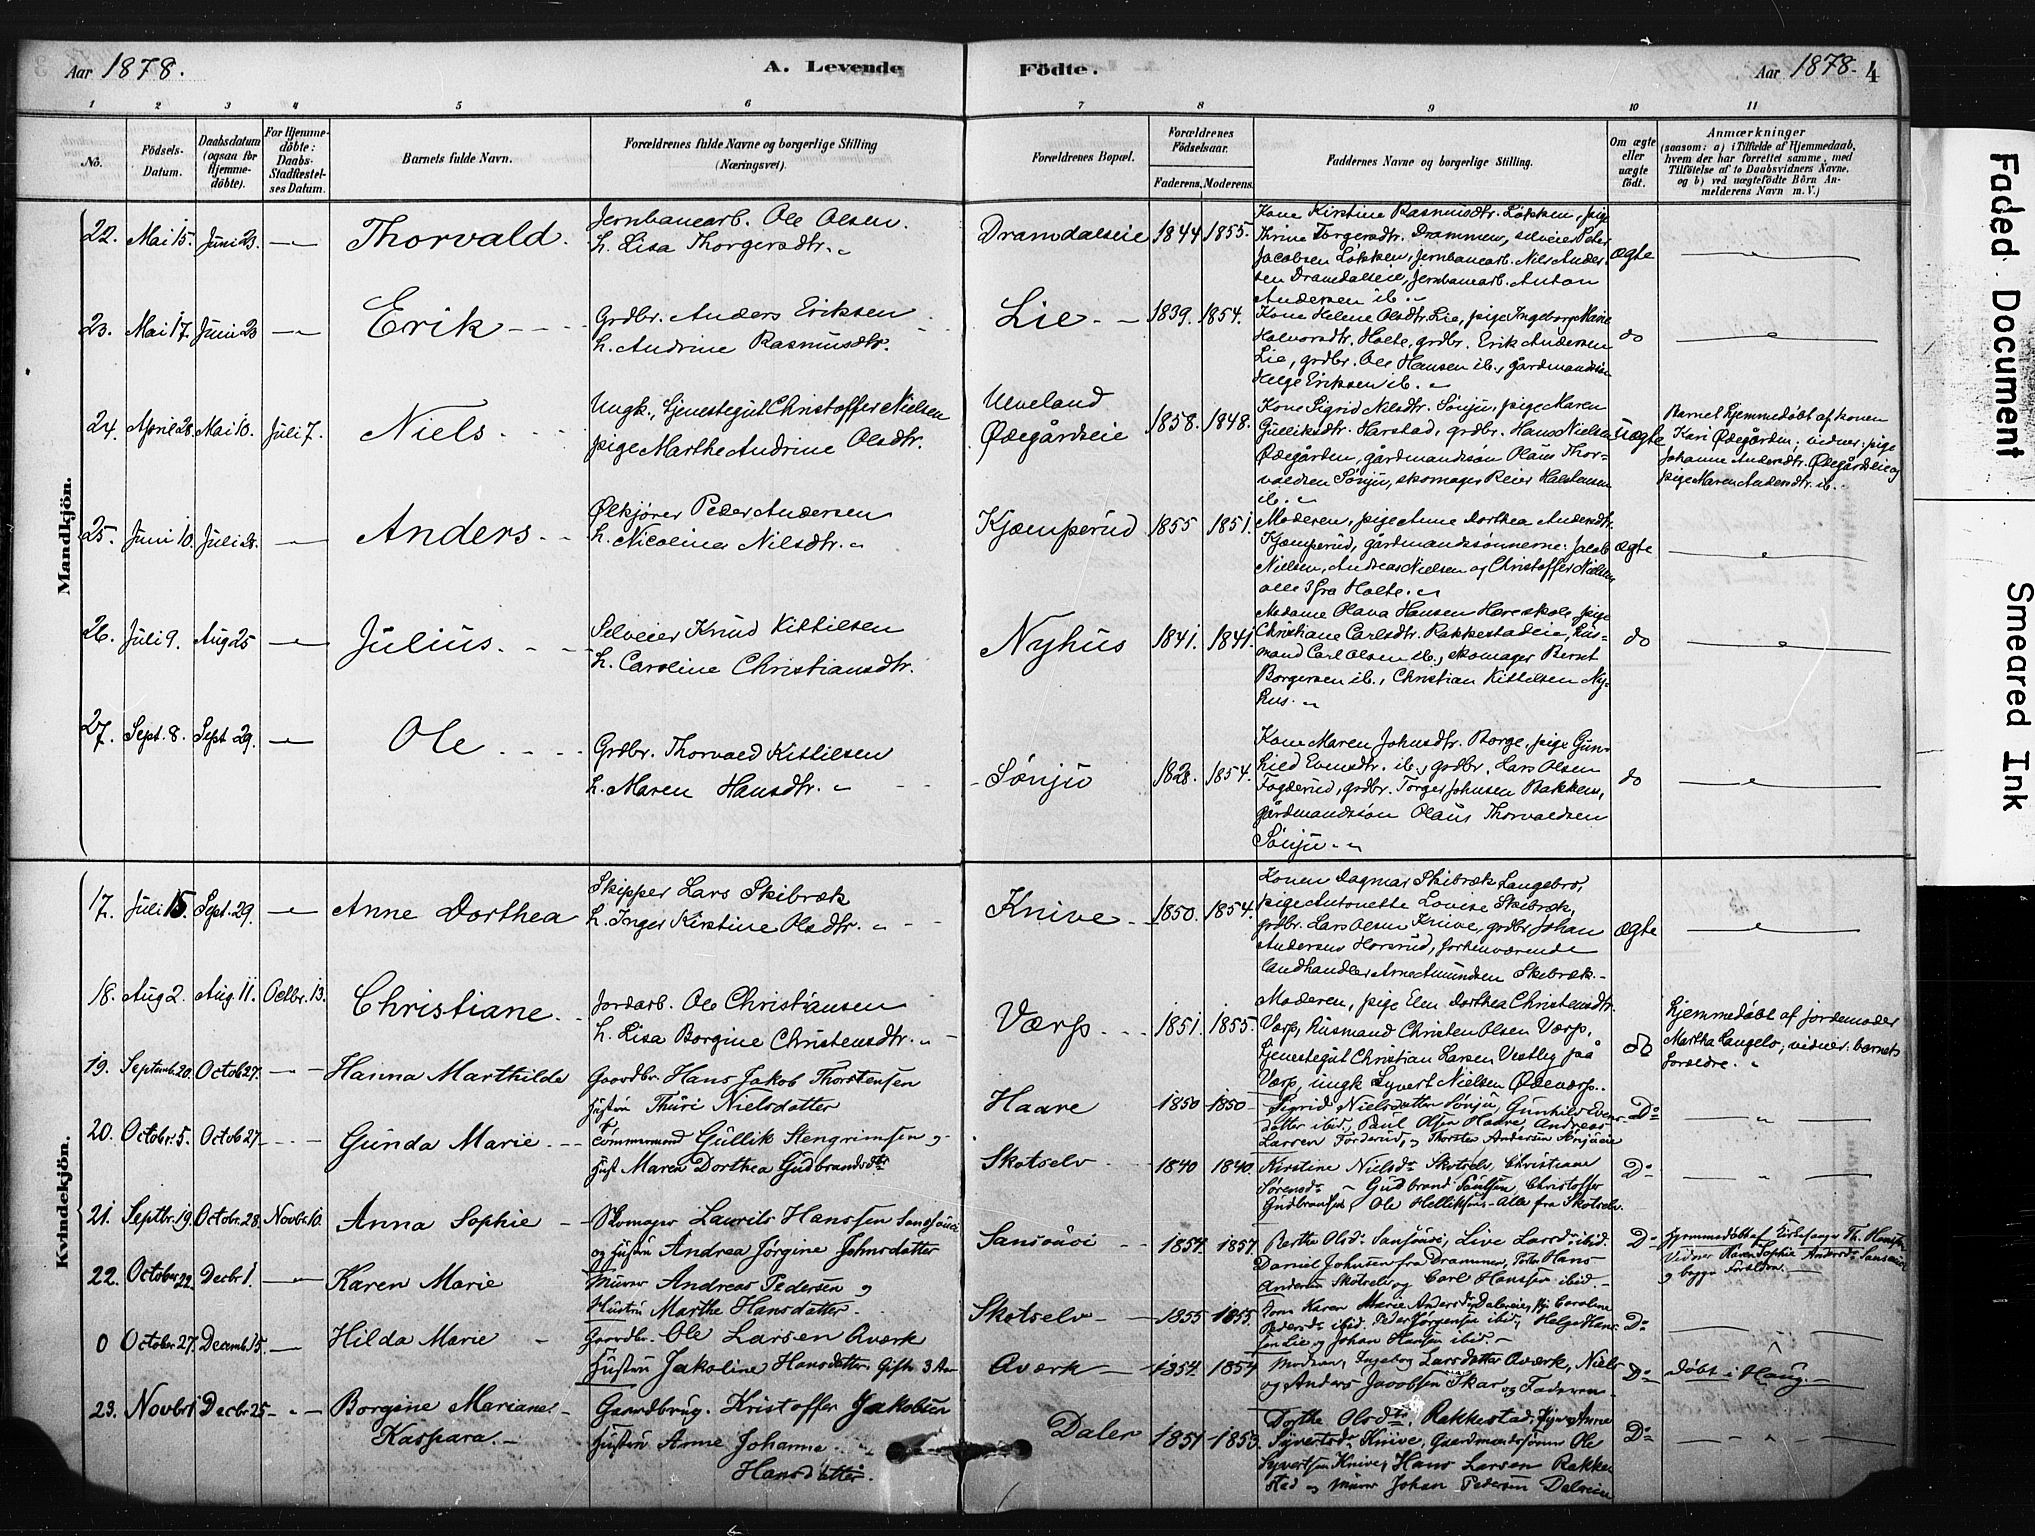 Aar 1878.
A. Levende Födte.
Aar 1878. 4
1 2 3 4 5 6 7 8 9 10 11
No.
Födsels-Datum.
Daabsdatum (ogsaa for Hjemmedöbte).
For Hjemmedöbte: Daabs-Stadfæstelses Datum.
Barnets fulde Navn.
Forældrenes fulde Navne og borgerlige Stilling (Næringsvei).
Forældrenes Bopæl.
Forældrenes Födselsaar.
Faderens. Moderens.
Faddernes Navne og borgerlige Stilling.
Om ægte eller uægte födt.
Anmærkninger
(saasom: a) i Tilfælde af Hjemmedaab, hvem der har forrettet samme, med Tilföielse af to Daabsvidners Navne, og b) ved uægtefödte Börn Anmelderens Navn m. V.)
Mandkjön.
22. Mai 15. Juni 23. — Thorvald.
Jernbanearb. Ole Olsen.
h. Lisa Thorgersdtr.
Dramdalseie 1844 1855.
Kone Kirstine Rasmusdtr. Løkken, pige
Thrine Torgersdtr. Drammen, selveier Peter
Jacobsen Løkken, jernbanearb. Nils Ander-
sen Dramdalseie, jernbanearb. Anton
Andersen ib.
ægte
23. Mai 17. Juni 23 — Erik
Grdbr. Anders Eriksen
h. Andrine Rasmusdtr.
Lie 1839. 1854.
Kone Helene Olsdtr. Lie, pige Ingeborg Marie
Halvorsdtr. Holte, grdbr. Erik Andersen
Lie, grdbr. Ole Hansen ib., gårdmandssøn
Helge Eriksen ib.
do
24. April 28. Mai 10. Juli 7. Niels
Ungk., tjenestegut Christoffer Nielsen
pige Marthe Andrine Olsdtr.
Ulveland
Ødegårdseie 1858. 1848.
Kone Sigrid Nilsdtr. Sønju, pige Maren
Gulliksdtr. Harstad, grdbr. Hans Nielsen
Ødegården, gårdmandssøn Olaus Thor-
valdsen Sønju, skomager Reier Halstensen
ib.
uægte
Barnet hjemmedøbt af konen
Kari Ødegården; vidner: pige
Johanne Andersdtr. Ødegårdseie og
pige Maren Andersdtr. ib.
25. Juni 10. Juli 28. — Anders
Ølkjører Peder Andersen
h. Nicoline Nilsdtr.
Kjæmperud 1855 1851.
Moderen, pige Anne Dorthea Andersdtr.
Kjæmperud, gårdmandssønnerne: Jacob
Nielsen, Andreas Nielsen og Christoffer Nielsen
alle 3 fra Holte.
ægte
26. Juli 9. Aug 25 — Julius.
Selveier Knud Kittilsen
h. Caroline Christiansdtr.
Nyhus 1841. 1841.
Madame Olava Hansen Horeskole, pige
Christiane Carlsdtr. Rakkestadeie, hus-
mand Carl Olsen ib., skomager Bernt
Borgersen ib., Christian Kittilsen Ny-
hus.
do
27. Sept. 8. Sept 29. — Ole
Grdbr. Thorvald Kittilsen
h. Maren Hansdtr.
Sønju 1828. 1854.
Kone Maren Johnsdtr. Borge, pige Gun-
hild Evensdtr. ib., grdbr. Lars Olsen
Fogderud, grdbr. Torger Johnsen Bakken,
gårdmandssøn Olaus Thorvaldsen
Sønju.
do
Kvindekjön.
17. Juli 15. Sept. 29. — Anne Dorthea
Skipper Lars Skibræk
h. Inger Kirstine Olsdtr.
Knive 1850. 1854.
Konen Dagmar Skibræk Langebro,
pige Antonette Lovise Skibræk,
grdbr. Lars Olsen Knive, grdbr Johan
Andersen Horsrud, forhenværende
landhandler Arne Amundsen Skibræk.
ægte
18. Aug 2. Aug. 11. Octbr. 13. Christiane
Jordarb. Ole Christiansen
h. Lisa Borgine Christensdtr.
Værp 1851. 1855.
Moderen, pige Elen Dorthea Christensdtr.
Værp, husmand Christen Olsen Værp,
tjenestegut Christian Larsen Vestby paa
Værp, ungk Syvert Nielsen Ødeværp.
do
Hjemmedøbt af jordemoder
Martha Langelo; vidner: barnets
forældre.
19. Septemb. 20. Octob 27. — Hanna Marthilde
Gaardbr. Hans Jakob Thorstensen
Hustru Thuri Nielsdatter
Haare 1850 1850
Sigrid Nielsdatter Sønju, Gunhild Evens-
datter ibid, Paul Olsen Haare, Andreas
Larsen Forderud, og Thorsten Andersen Sønjueie
Do
20. Octobr. 5. Octob 27 Gunda Marie
Tømmermand Gullik Stengrimsen og
Hust Maren Dorthea Gudbrandsdtr
Skotselv 1840 1840.
Kirstine Nielsdr. Skotselv, Christiane
Sørensdr. Gudbrand Paulsen, Christoffer
Gudbrandsen, Ole Helliksen. Alle fra Skotselv.
Do
21. Septbr. 19. Octobr. 28. Novbr. 10. Anna Sophie
Skomager Laurits Hanssen Sansouci
og Hustru Andrea Jörgine Johnsdatter
Sansouci 1857. 1857.
Berthe Olsdr Sansouci, Live Larsdr. ibid.
Daniel Johnsen fra Drammen, Peter Hans
Andersen Skotselv og Carl Hanssen ibid
Do
Hjemmedøbt af Kirkesanger Th. Hansen
Vidner Karen Sophie Andersdr. Sansouci
og begge Forældre.
22. October 22. Decbr 1. — Karen Marie
Murer Andreas Pedersen og
Hustru Marthe Hansdatter.
Skotselv 1855 1855
Karen Marie Andersdr. Daleseie, Caroline
Pedersdr. ibid. Peder Jørgensen ibid, Helge Hans-
sen Lie og Johan Hansen ibid.
Do
0 October 27. Decemb. 15. — Hilda Marie
Gaardbr. Ole Larsen Aværk
Hustru Jakoline Hansdatter. Gifte 3 Aar
Aværk 1854 1854
Moderen, Ingeborg Larsdatter Aværk, Niels
og Anders Jacobsen Skar og Faderen.
Do
døbt i Haug.
23. Novbr 1 Decbr 25 Borgine Mariane
Kaspara.
Gaardbrug. Kristoffer Jakobsen
Hustru Anne Johanne
Hansdatter.
Daler 1851 1853
Dorthe Olsdtr. Rakkestad, Pige Anne
Syvertsdr. Knive, Gaardmandssønner Ole
Syvertsen Knive, Hans Larsen Rakke-
stad og Murer Johan Pedersen Daleseie
Do
Faded Document
Smeared Ink